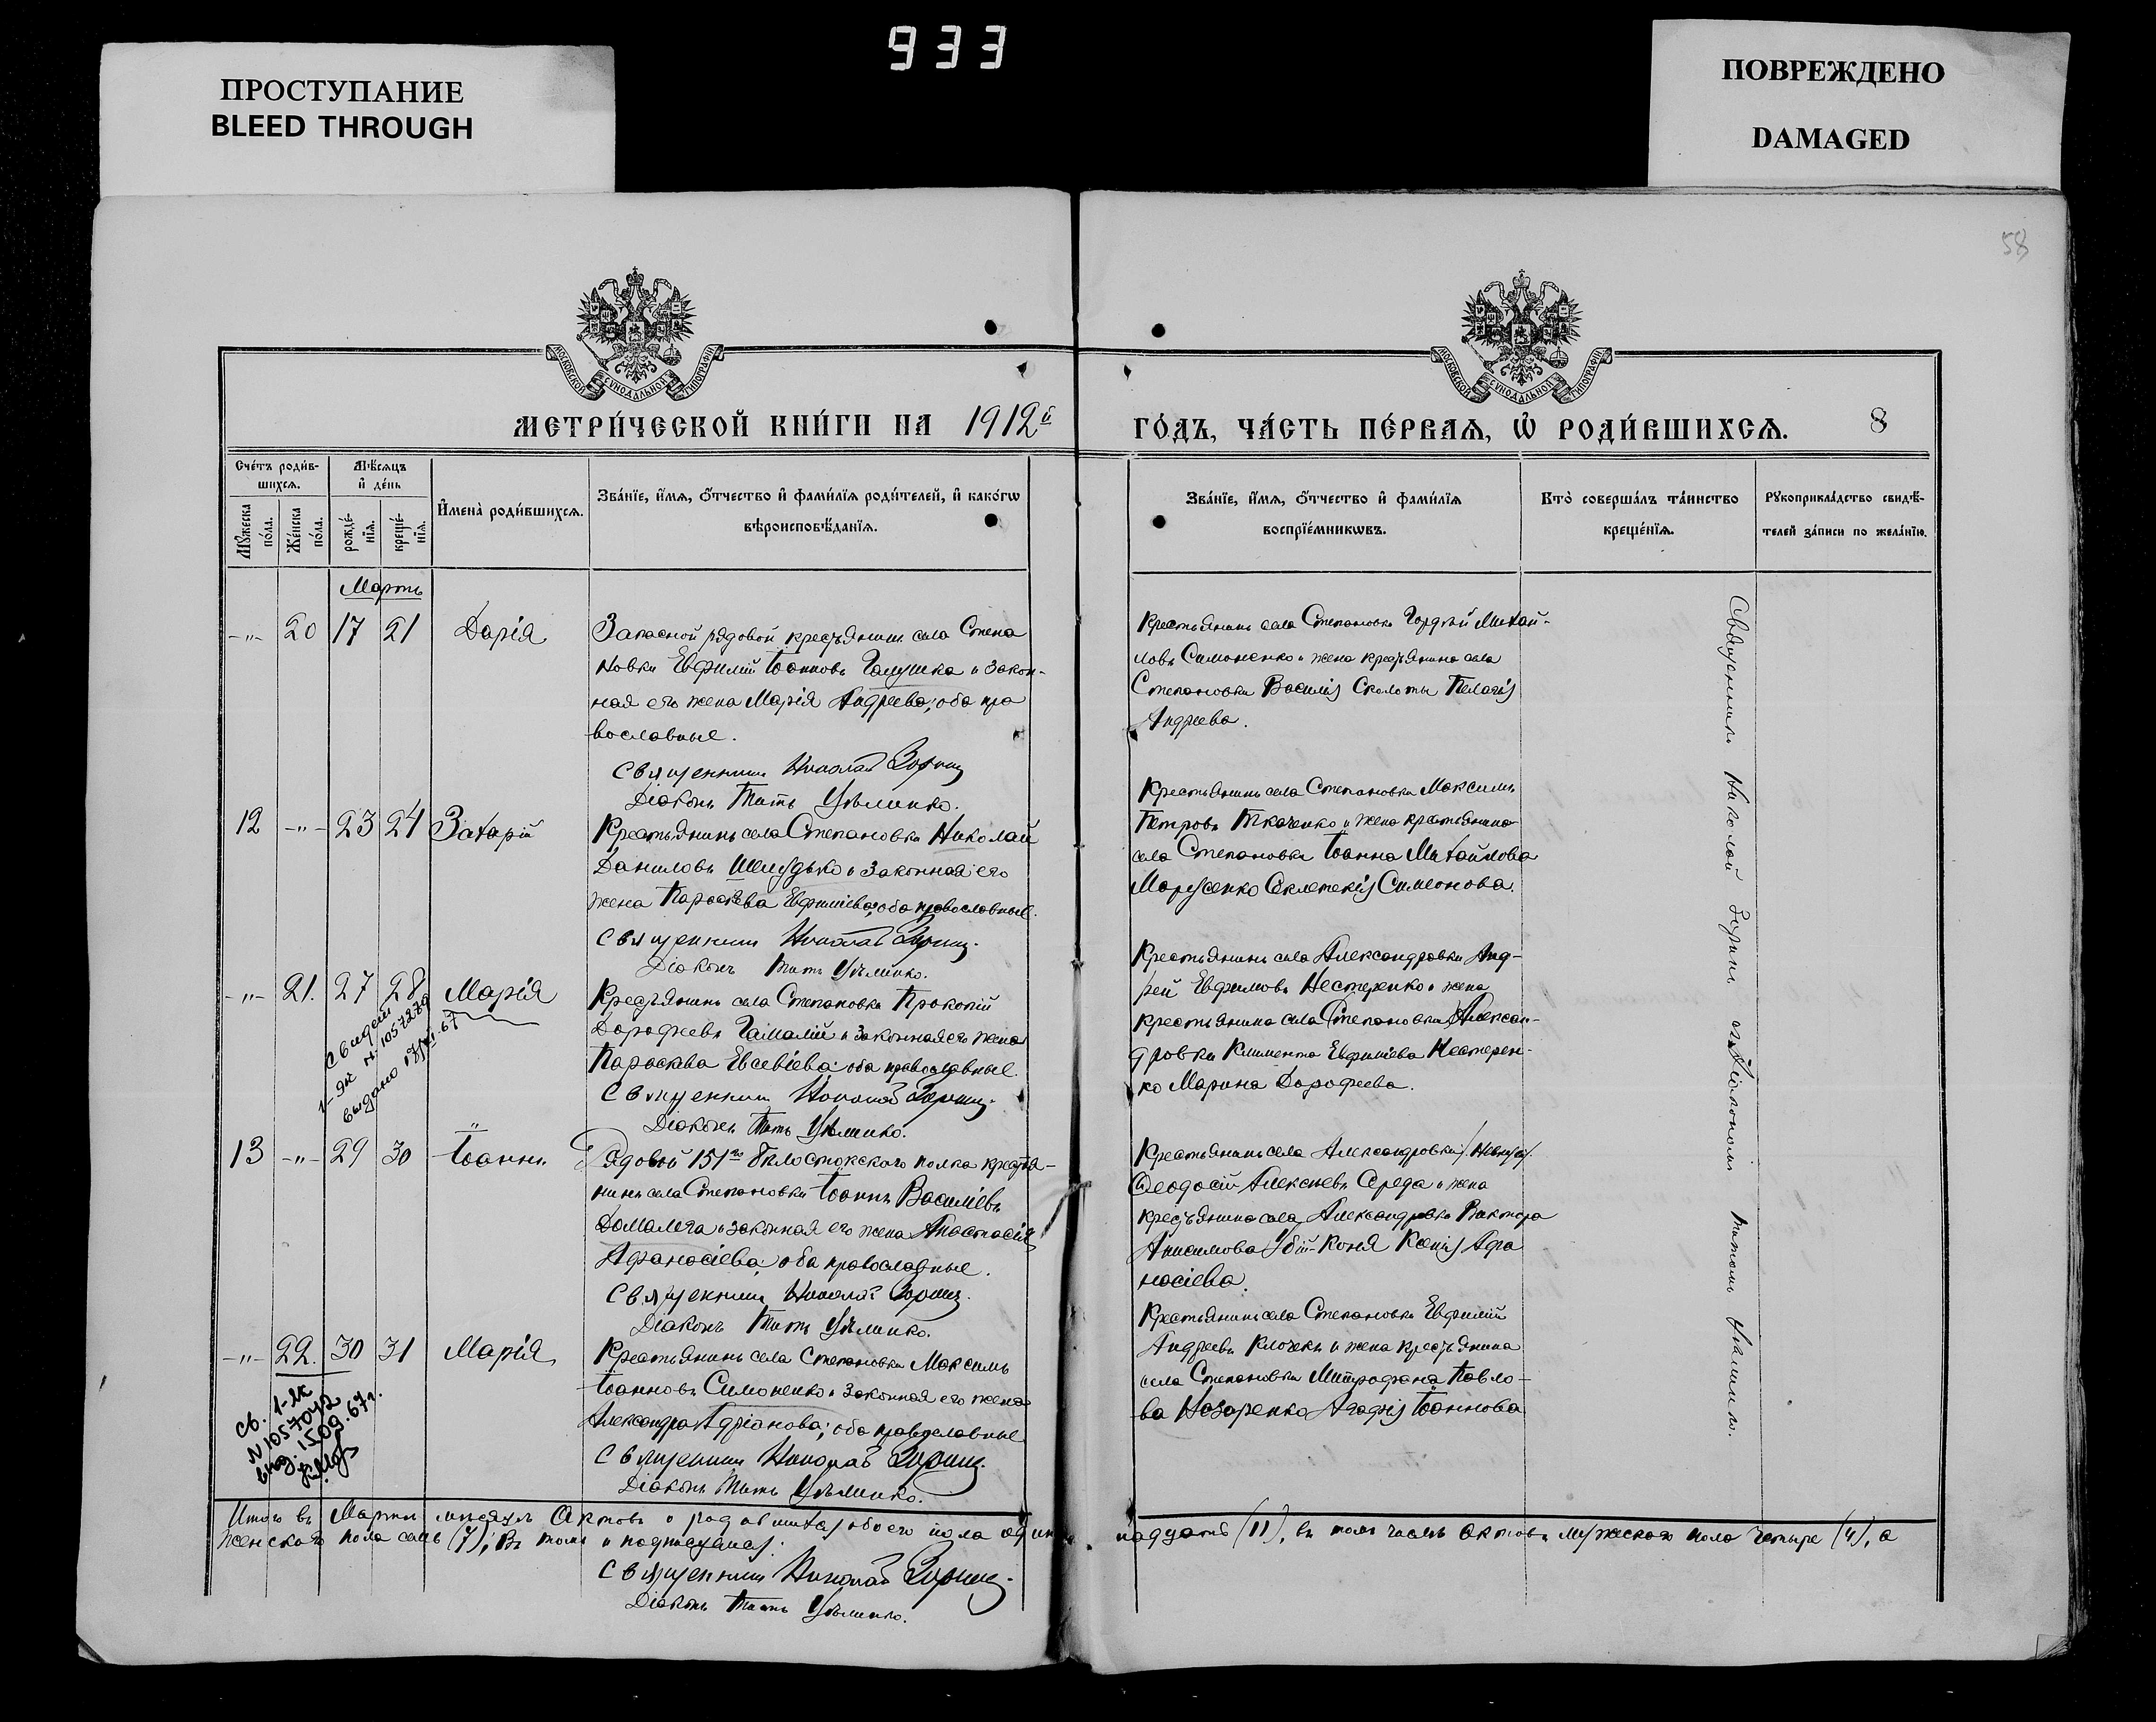 933
ПРОСТУПАНИЕ
BLEED THROUGH
ПОВРЕЖДЕНО
DAMAGED
58
МОСКОВСКОЙ СѴНОДАЛЬНОЙ ТИПОГРАФІИ
МОСКОВСКОЙ СѴНОДАЛЬНОЙ ТИПОГРАФІИ
МЕТРИ́ЧЕСКОЙ КНИ́ГИ НА 1912й
ГО́ДЪ, ЧА́СТЬ ПЕ́РВАѦ, Ѡ҆ РОДИ́ВШИХСѦ. 8
Сче́тъ роди́в-
шихсѧ.
Мꙋ́жеска по́ла.
Же́нска по́ла.
Мѣ́сѧцъ
и҆ де́нь
рожде́-
нїѧ.
креще́-
нїѧ.
И҆мена̀ роди́вшихсѧ.
Зва́нїе, и҆́мѧ, ѻ҆́тчество и҆ фами́лїѧ роди́телей, и҆ како́гѡ
вѣроисповѣ́данїѧ.
Зва́нїе, и҆́мѧ, ѻ҆́тчество и҆ фами́лїѧ
воспрїе́мникѡвъ.
Кто̀ соверша́лъ та́инство
креще́нїѧ.
Рꙋкоприкла́дство свидѣ́-
телей за́писи по жела́нїю.
Мартъ
-"- 20 17 21 Дарія
Запасной рядовой крестьянинъ села Степа
новки Евфимій Іоанновъ Галушка и закон-
ная его жена Марія Андреева; оба пра
вославные.
Священникъ Николай Зоринъ
Діаконъ Титъ
Крестьянинъ села Степановки Гордѣй Михай-
ловъ Симоненко и жена крестьянина села
Степановки Василія Сколоты Пелагія
Андреева.
12 -"- 23 24 Захарій
Крестьянинъ села Степановки Николай
Даниловъ Шелудько и законная его
жена Параскева Евфиміева; оба православные.
Священникъ Николай Зоринъ.
Діаконъ Титъ
Крестьянинъ села Степановки Максимъ
Петровъ Ткаченко и жена крестьянина
села Степановки Іоанна Михайлова
Марусенко Симеонова.
-"- 21. 27 28 Марія
Свидет.
1-ЯК № 1057279
выдано
Крестьянинъ села Степановки Прокопій
Дорофеевъ Гамалій и законная его жена
Параскева Евсевіева; оба православные.
Священникъ Николай Зоринъ.
Діаконъ Титъ
Крестьянинъ села Александровки Анд-
рей Евфимовъ Нестеренко и жена
крестьянина села Степановки Алексан-
дровки Климента Евфиміева Нестерен-
ко Марина Дорофеева.
13 -"- 29 30 Іоаннъ
Рядовой 151го Бѣлостокского полка крестья-
нинъ села Степановки Іоаннъ Василіевъ
Домалега и законная его жена Анастасія
Афанасіева; оба православные.
Священникъ Николай Зоринъ.
Діаконъ Титъ
Крестьянинъ села Александровки
Ѳеодосій Алексѣевъ Середа и жена
крестьянина села Александровки Виктора
Анисимова Убій-Коня Ксенія Афа
насіева.
-"- 22. 30 31 Марія
Св. 1-ЯК
N 1057042
выд. 15.09.67г.
Крестьянинъ села Степановки Максимъ
Іоанновъ Симоненко и законная его жена
Александра Адріанова; оба православные
Священникъ Николай Зоринъ.
Діаконъ Титъ
Крестьянинъ села Степановки Евфимій
Андреевъ Клочекъ и жена крестьянина
села Степановки Митрофана Павло-
ва Назаренко Агафія Іоаннова
Священникъ Николай Зоринъ съ Діакономъ Титомъ
Итого въ Мартѣ мѣсяцѣ актовъ о родившихся обоего пола один-
надцать (11), въ томъ числѣ актовъ мужескаго пола четыре (4), а
женскаго пола семь (7); въ томъ и подписуемся:
Священникъ Николай Зоринъ.
Діаконъ Титъ